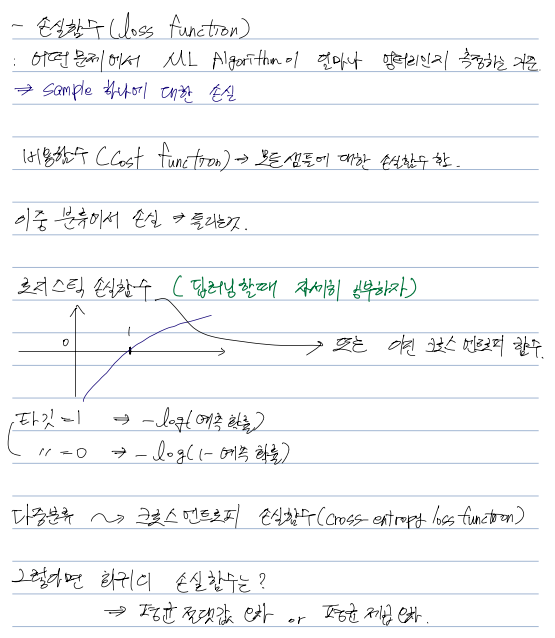 - 손실함수 (loss function)
: 어떤 문제에서 ML Algorithm이 얼마나 엉터리인지 측정하는 기준
⇒ sample 하나에 대한 손실
비용함수 (Cost function) → 모든 샘플에 대한 손실함수 합.
이중 분류에서 손실 → 틀리는것.
로지스틱 손실함수 (딥러닝할때 자세히 공부하자)
0 1
→ 또는 이진 크로스 엔트로피 함수.
타깃 = 1 → -log(예측 확률)
〃 = 0 → -log(1- 예측 확률)
다중분류 ~> 크로스 엔트로피 손실함수(cross-entropy loss function)
그렇다면 회귀의 손실함수는?
⇒ 평균 절댓값 오차 or 평균 제곱 오차.